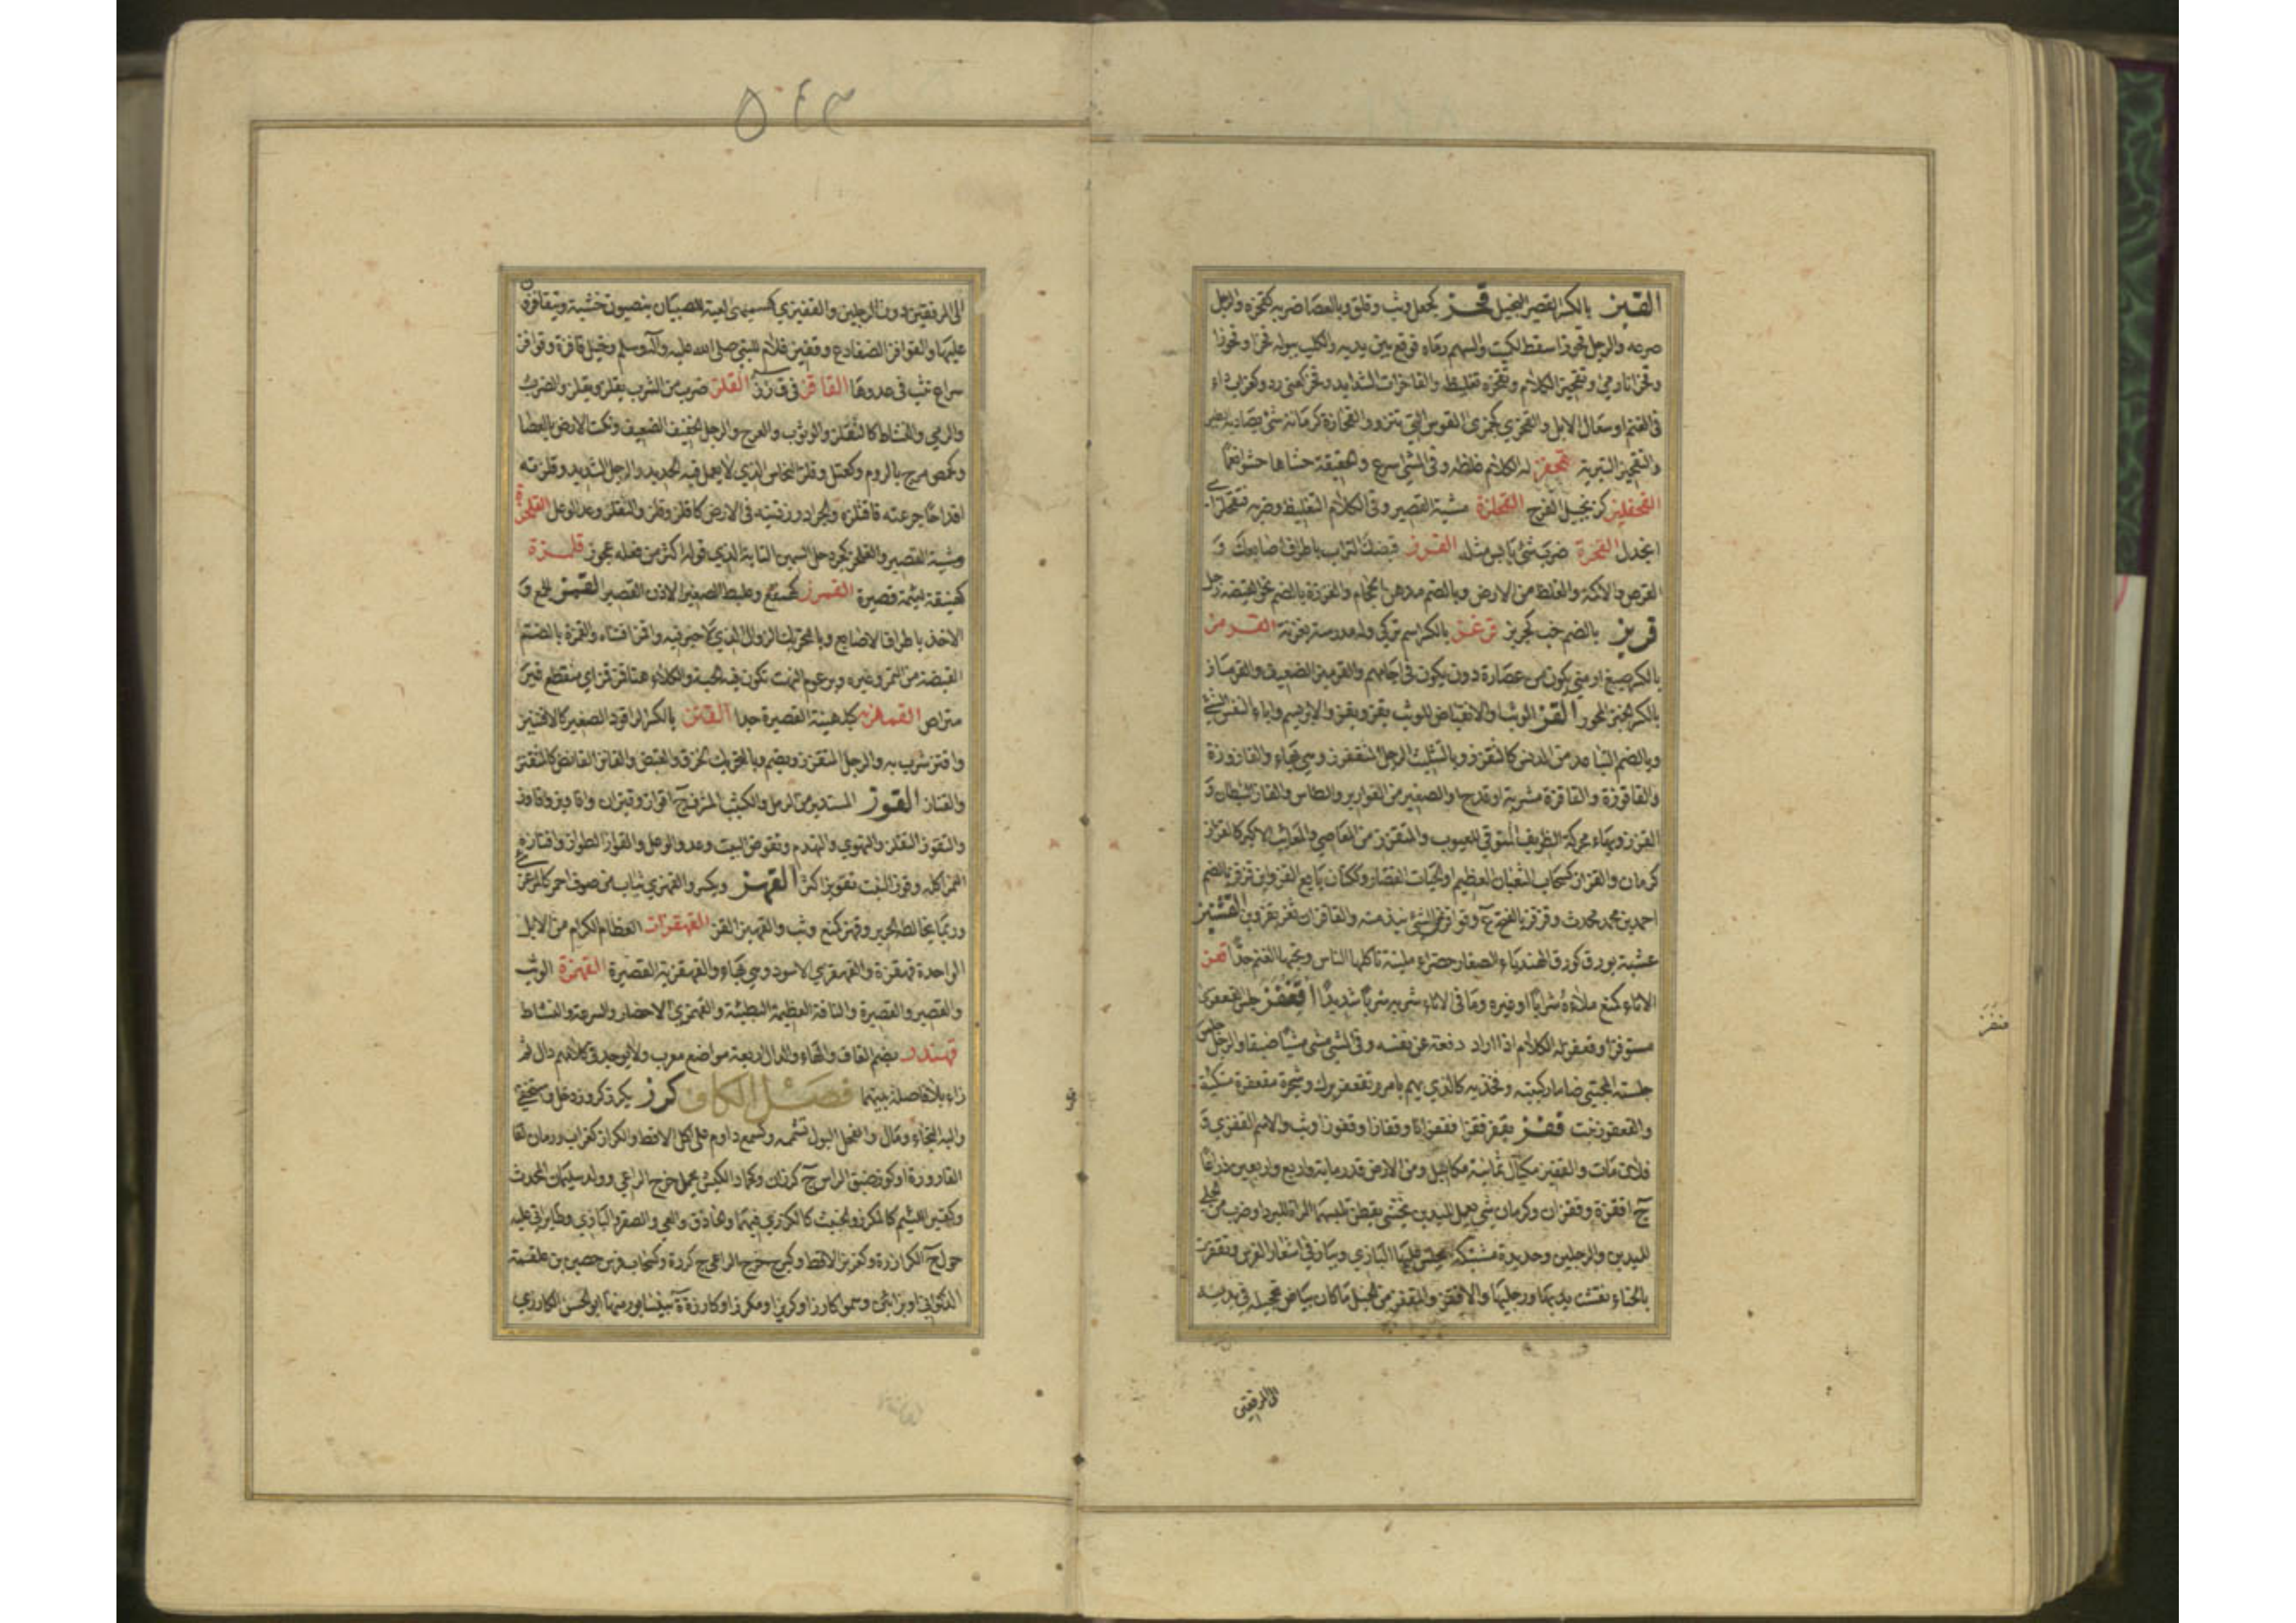 القبز بالكسر القصير البخيل قحز كجعل وثب وقلق وبالعصا ضربه كقحزه والرجل
صرعه والرجل قحوزا سقط كالميت والسهم رماه فوقع بين يديه والكلب ببوله قحزا وقحوزا
وقحزانا رمى وتقحيز الكلام وتقحزه تغليظه والقاحزات الشدايد وقحز كعنى رد وكغراب داء
في الغنم او سعال الابل والقحزى كجمزى القوس التي تنزو والقحازة كرمانة شئ يصاد به
والتقحيز التنزية قحفز له الكلام غلظه وفي المشي اسرع والحقيبة حشاها حشوا نعما
القحفليز كزنجبيل الفرج القحلزة مشية القصير وفي الكلام التغليظ وضربه فتقحلز اي
انجدل القخزة ضرب شئ يابس بمثله القرز قبضك التراب باطراف اصابعك و
القرص والاكمة والغلظ من الارض وبالضم مدهن الحجام والقرزة بالضم نحو القبضة
قربز بالضم خب كجربز قرغز بالكسر اسم تركي وله مدرسة بغزنة القرمز
بالكسر صبغ ارمني يكون من عصارة دود يكون في اجامهم والقرميز الضعيف والقرماز
بالكسر الخبز المحور القز الوثب والانقباض للوثب يقز ويقز والابريسم واباء النفس الشئ
وبالضم التباعد من الدنس كالتقزز وبالتثليث الرجل المتقزز وهي بهاء والقازوزة
والقاقوزة والقاقزة مشربة او قدح او الصغير من القوارير والطاس والقاز الشيطان و
القزز وبهاء محركة الظريف المتوقي للعيوب والمتقزز من المعاصي والمعائب لا الكبر كالقزاز
كرمان والقزاز كسحاب الثعبان العظيم او الحيات القصار وككتان بايع القز وابن قزقز بالضم
احمد بن محمد محدث وقزقز بالفتح ع وقوازيز الشئ نيذمته والقاقزان ثغر بقزوين القشنيز
عشبة بورق كورق الهندباء الصغار خضراء ملبنة تأكلها الناس ويحبها الغنم جدا قعز
الاناء كمنع ملاءه شرابا او غيره وما في الاناء شربه شربا شديدا اقعنفز جلس القعفزى
مستوفزا وقعفز له الكلام اذا اراد دفعة عن نفسه وفي المشي مشى مشيا ضيقا والرجل جلس
جلسة المحتبي ضاما ركبتيه وفخذيه كالذي يهم بامر وتقعفز برك وشجرة مقعفزة منكبة
والقعفوز نبت قفز يقفز قفزا وقفزانا وقفازا وقفوزا وثب والاسم القفزى و
فلان مات والقفيز مكيال ثمانية مكاكيل ومن الارض قدر ماية واربع واربعين ذراعا
ج اقفزة وقفزان وكرمان شئ يعمل لليدين يحشى بقطن تلبسهما المرأة للبرد او ضرب من الحلي
لليدين والرجلين وحديدة مشبكة يجلس عليها البازي وبياض في اشعار الفرس وتقفزت
بالحناء نقشت يديها ورجليها والاقفز والمقفز من الخيل ما كان بياض تحجيله في يديه
الى المرفقين
٥٤٣
الى المرفقين دون الرجلين والقفيزى كسميهى لعبة للصبيان ينصبون خشبة ويتقافزون
عليها والقوافز الضفادع وقفيز غلام للنبي صلى الله عليه وآله وسلم وخيل قافزة وقوافز
سراع تثب في عدوها القاقز في ق ز ز القلز ضرب من الشرب يقلز ويقلز والضرب
والرمي والنشاط كالتقلز والوثوب والعرج والرجل الخفيف الضعيف ونكت الارض بالعصا
وكحمص مرج بالروم وكعتل وفلز النحاس الذي لا يعمل فيه الحديد والرجل الشديد وقلزته
اقداحا جرعته فاقتلزه والجراد رز ذنبه في الارض كاقلز وقلز والتقلز وعدو الوعل القلحزة
مشية القصير والقلحز كجردحل السمين التابة الذي قوله اكثر من فعله عجوز قلمزة
كهبنقة لئيمة قصيرة القمرز كهمقع وعلبط الصغير الاذن القصير القمز الجمع و
الاخذ باطراف الاصابع وبالتحريك الرذال الذي لا خير فيه واقمز اقتناه والقمزة بالضم
القبضة من التمر وغيره وبرعوم النبت تكون فيه الحبة والكلاء هنا قمز قمز اي متقطع غير
متراص القمهزية كبلهنية القصيرة جدا القنز بالكسر الراقود الصغير كالاقنيز
واقنز شرب به والرجل المتقزز ويضم وبالتحريك الخزق والقنص والقانز القانص كالمتقنز
والقناز القوز المستدير من الرمل والكثيب المشرف ج اقواز وقيزان واقاويز واقاوز
والتقوز التقلز والتهوي والتهدم وتقوض البيت وعدو الوعل والقواز الطواز واقتازه
النمر اكله وقوز النبت تقويزا كثر القهز ويكسر والقهزي ثياب من صوف احمر كالمرعزى
وربما يخالطه الحرير وقهز كمنع وثب والقهيز القز القهقزات العظام الكرام من الابل
الواحدة قهقزة والقهقزي الاسود وهي بهاء والقهقزية القصيرة القهمزة الوثب
والقصير والقصيرة والناقة العظيمة البطيئة والقهمزى الاحضار والسرعة والنشاط
قهندز بضم القاف والهاء والدال اربعة مواضع معرب ولا يوجد في كلامهم دال ثم
زاء بلا فاصلة بينهما فصل الكاف كرز يكرز كروزا دخل واستخفى
واليه التجاء ومال والفحل البول تشممه وكسمع داوم على اكل الاقط والكراز كغراب ورمان
القارورة او كوز ضيق الراس ج كرزان وكحماد الكبش يحمل خرج الراعي ووالد سليمان المحدث
وكقبر اللئيم كالمكرز والخبيث كالكرزي فيهما والحاذق والعيي والصقر والبازي وطاير اتى عليه
حول ج الكرازرة وكغريز الاقط وكبرج خرج الراعي ج كرزة وكسحاب فرس حصين بن علقمة
الذكواني او بزابئى وسموا كارزا وكريزا ومكرزا وكارزة ة بنيسابور منها ابو الحسن الكارزي